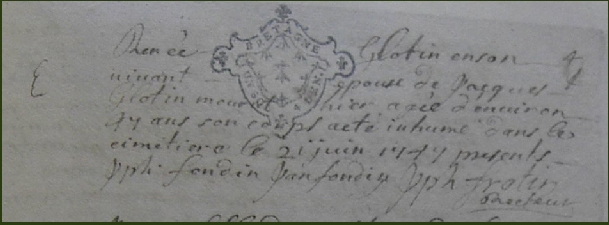 Renée Glotin enson
vivant epouse de Jacques
Glotin mourut hier agée d'environ
47 ans son corps a eté inhumé dans le
cimetiere le 21 juin 1747 presents
jph: fondin jan fondin jph frotin
Recteur
BRETAGNE